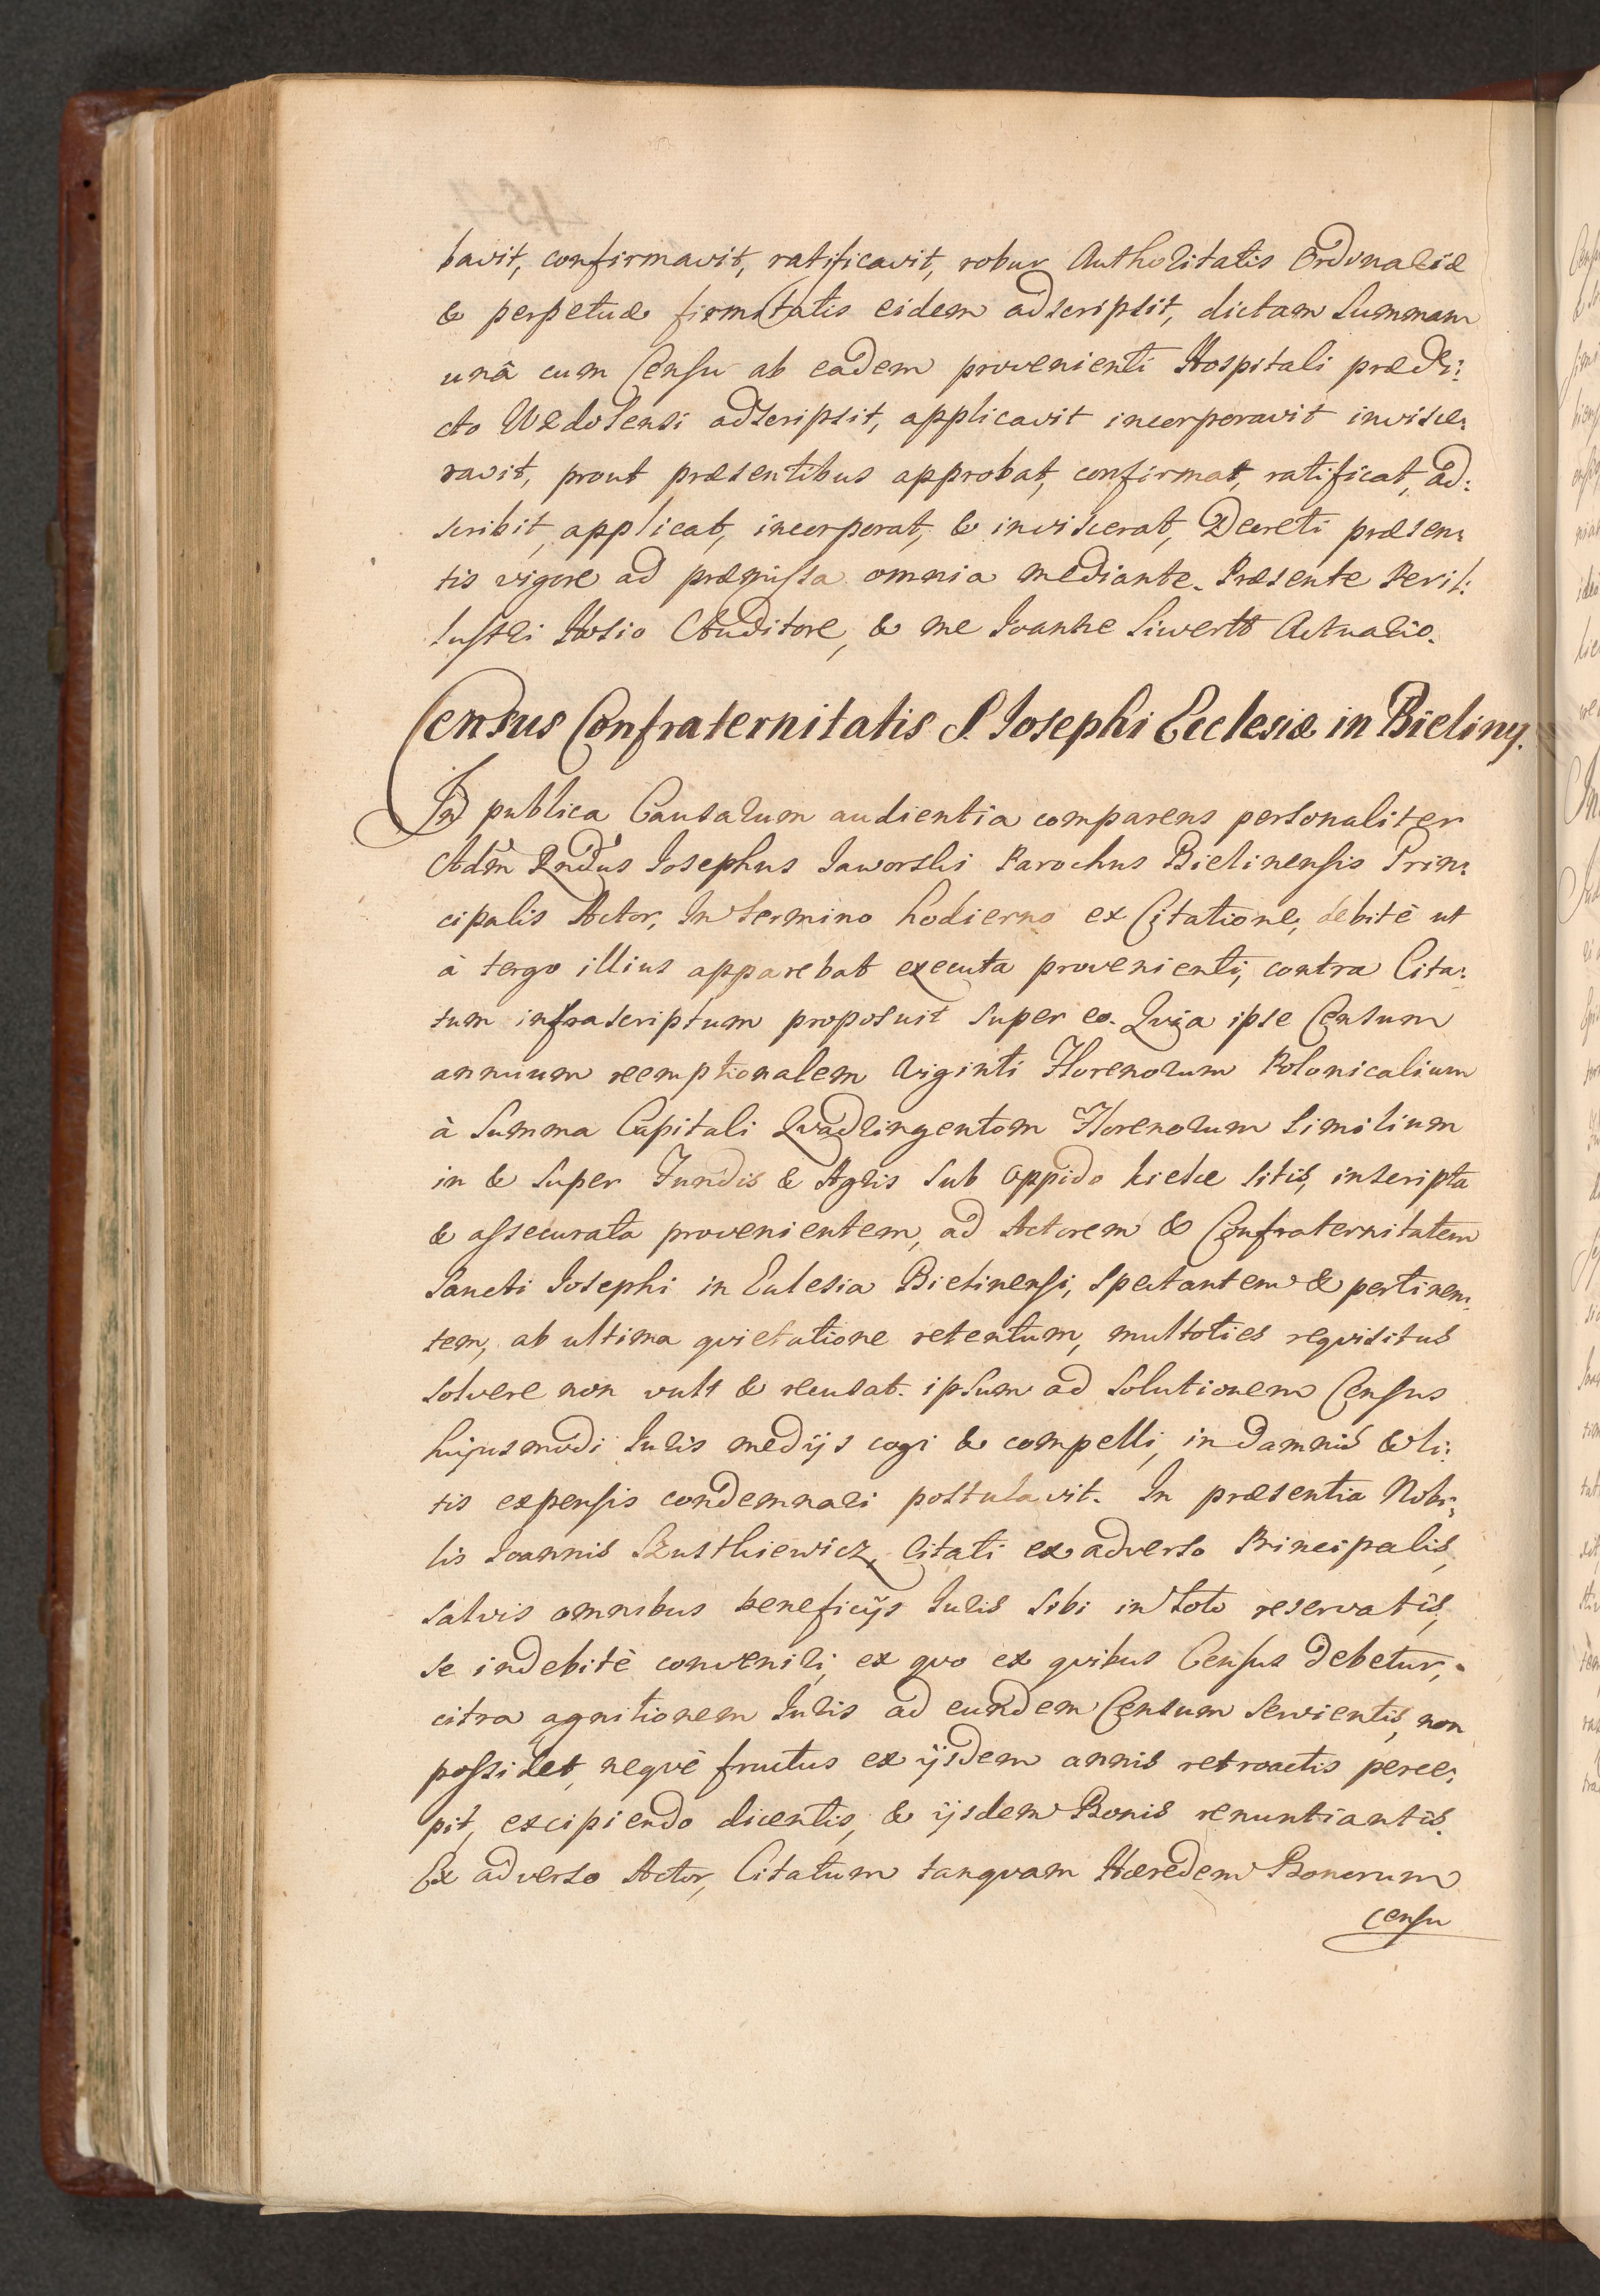 bavit, confirmavit, ratificavit, robur Authoritatis Ordinariæ
& perpetuæ firmitatis eidem adscripsit, dictam Summam
unâ cum Censu ab eadem provenienti Hospitali prædi:
cto Wzdolensi adscripsit, applicavit incorporavit invisce:
ravit, prout præsentibus approbat, confirmat, ratificat, ad:
scribit, applicat, incorporat, & inviscerat, Decreti præsen:
tis vigore ad præmissa omnia mediante. Præsente Peril:
lustri Hosio Auditore, & me Joanne Siwertt Actuario.
Census Confraternitatis S. Josephi Ecclesiæ in Bieliny.
In publica Causarum audientia comparens personaliter
Adm̄ Rndūs Josephus Jaworski Parochus Bielinensis Prin:
cipalis Actor, In termino hodierno ex Citatione, debitè ut
à tergo illius apparebat executa provenienti, contra Cita:
tum infrascriptum proposuit super eo. Qvia ipse Censum
annuum reemptionalem Viginti Florenorum Polonicalium
à Summa Capitali Qvadringentorum Florenorum Similium
in & super Fundis & Agris sub oppido Kielce sitis, inscripta
& assecurata provenientem, ad Actorem & Confraternitatem
Sancti Josephi in Ecclesia Bielinensi, spectantem & pertinen:
tem, ab ultima qvietatione retentum, multoties reqvisitus
solvere non vult & recusat. ipsum ad Solutionem Census
hujusmodi Juris medijs cogi & compelli, in damnis & li:
tis expensis condemnari postulavit. In præsentia Nobi:
lis Joannis Szustkiewicz, Citati ex adverso Principalis,
salvis omnibus beneficijs Juris sibi in toto reservatis,
se indebitè conveniri, ex qvo ex qvibus Census debetur,
citra agnitionem Juris ad eundem Censum servientis, non
possidet, neqvè fructus ex ijsdem annis retroactis perce:
pit, excipiendo dicentis, & ijsdem Bonis renuntiantis.
Ex adverso Actor, Citatum tanqvam Hæredem Bonorum
censu